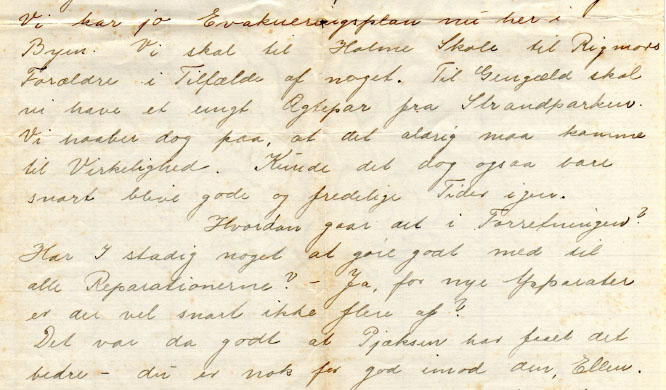 Vi har jo Evakueringsplan nu her i
Byen. Vi skal til Holme Skole til Rigmors
Forældre i Tilfælde af noget. Til Gengæld skal
vi have et ungt Ægtepar fra Strandparken.
Vi haaber dog paa, at det aldrig maa komme
til Virkelighed. Kunde det dog ogsaa bare
snart blive gode og fredelige Tider igen.
Hvordan gaar det i Forretningen?
Har I stadig noget at gøre godt med til
alle Reparationerne? - Ja, for nye Apparater
er der vel snart ikke flere af?
Det var da godt at Pjaksen har faaet det
bedre - du er nok for god imod den, Ellen.